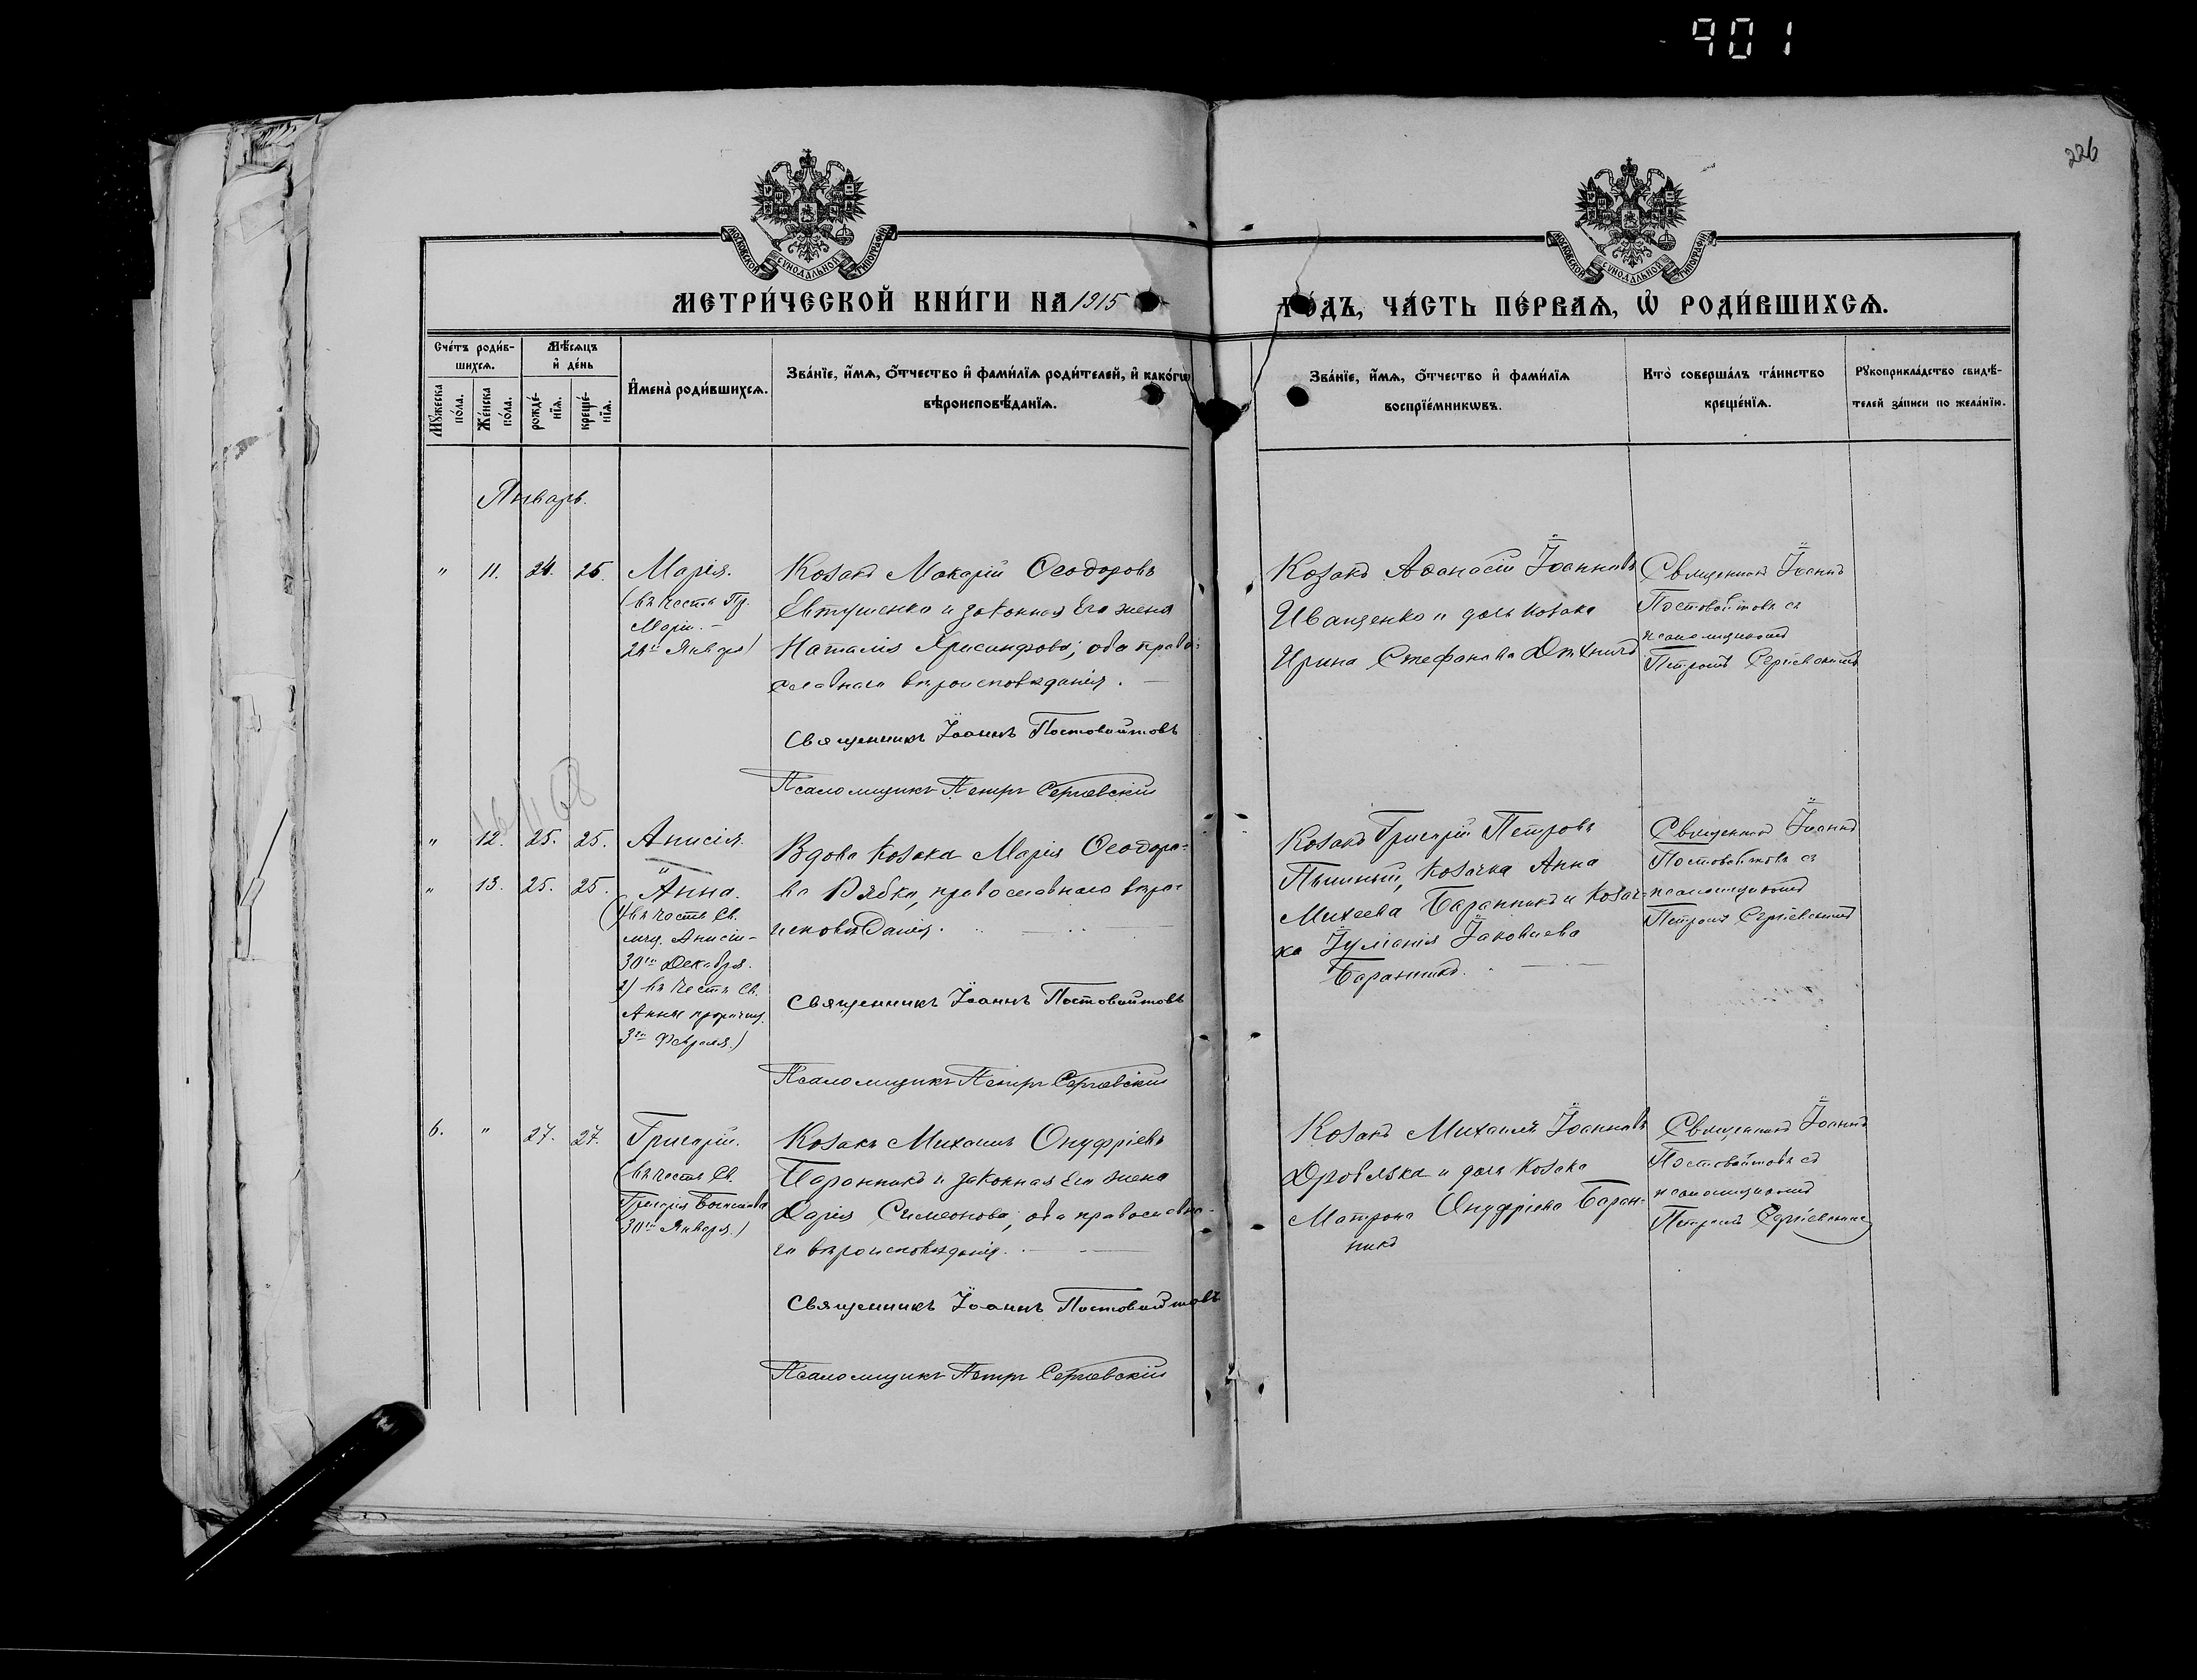 901
226
МОСКОВСКОЙ СѴНОДАЛЬНОЙ ТИПОГРАФІИ
МОСКОВСКОЙ СѴНОДАЛЬНОЙ ТИПОГРАФІИ
МЕТРИ́ЧЕСКОЙ КНИ́ГИ НА 1915
ГО́ДЪ, ЧА́СТЬ ПЕ́РВАѦ, Ѡ҆ РОДИ́ВШИХСѦ.
Сче́тъ роди́в-
шихсѧ.
Мꙋ́жеска по́ла.
Же́нска по́ла.
Мѣ́сѧцъ
и҆ де́нь
рожде́-
нїѧ.
креще́-
нїѧ.
И҆мена̀ роди́вшихсѧ.
Зва́нїе, и҆́мѧ, ѻ҆́тчество и҆ фами́лїѧ роди́телей, и҆ како́гѡ
вѣроисповѣ́данїѧ.
Зва́нїе, и҆́мѧ, ѻ҆́тчество и҆ фами́лїѧ
воспрїе́мникѡвъ.
Кто̀ соверша́лъ та́инство
креще́нїѧ.
Рꙋкоприкла́дство свидѣ́-
телей за́писи по жела́нїю.
Январь.
" 11. 24. 25. Марія.
(въ честь Пр.
Маріи. –
26го Января)
Козакъ Макарій Ѳеодоровъ
Евтушенко и законная его жена
Наталія Хрисанфова; оба право-
славнаго вѣроисповѣданія. —
Священникъ Іоаннъ Постовойтовъ
Псаломщикъ Петръ Сергіевскій
Козакъ Аѳанасій Іоанновъ
Иващенко и дочь козака
Ирина Стефанова
Священникъ Іоаннъ
Постовойтовъ съ
псаломщикомъ
Петромъ Сергіевскимъ
" 12. 25. 25. Анисія.
" 13. 25. 25. Анна.
(1) въ честь Св.
мчц. Анисіи –
30го Декабря.
2) въ честь Св.
Анны пророчицы
3го Февраля.)
Вдова козака Марія Ѳеодоро-
ва Рябка, православнаго вѣро-
исповѣданія.
Священникъ Іоаннъ Постовойтовъ
Псаломщикъ Петръ Сергіевскій
Козакъ Григорій Петровъ
Пышный, козачка Анна
Михеева Баранникъ и козач-
ка Іуліанія Іаковлева
Баранникъ.
Священникъ Іоаннъ
Постовойтовъ съ
псаломщикомъ
Петромъ Сергіевскимъ
6. " 27. 27. Григорій.
(въ честь Св.
Григорія Богослова
30го Января.)
Козакъ Михаилъ Онуфріевъ
Баранникъ и законная его жена
Дарія Симеонова; оба православна-
го вѣроисповѣданія.
Священникъ Іоаннъ Постовойтовъ
Псаломщикъ Петръ Сергіевскій
Козакъ Михаилъ Іоанновъ
Дровялка и дочь козака
Матрона Онуфріева Баран-
никъ
Священникъ Іоаннъ
Постовойтовъ съ
псаломщикомъ
Петромъ Сергіевскимъ